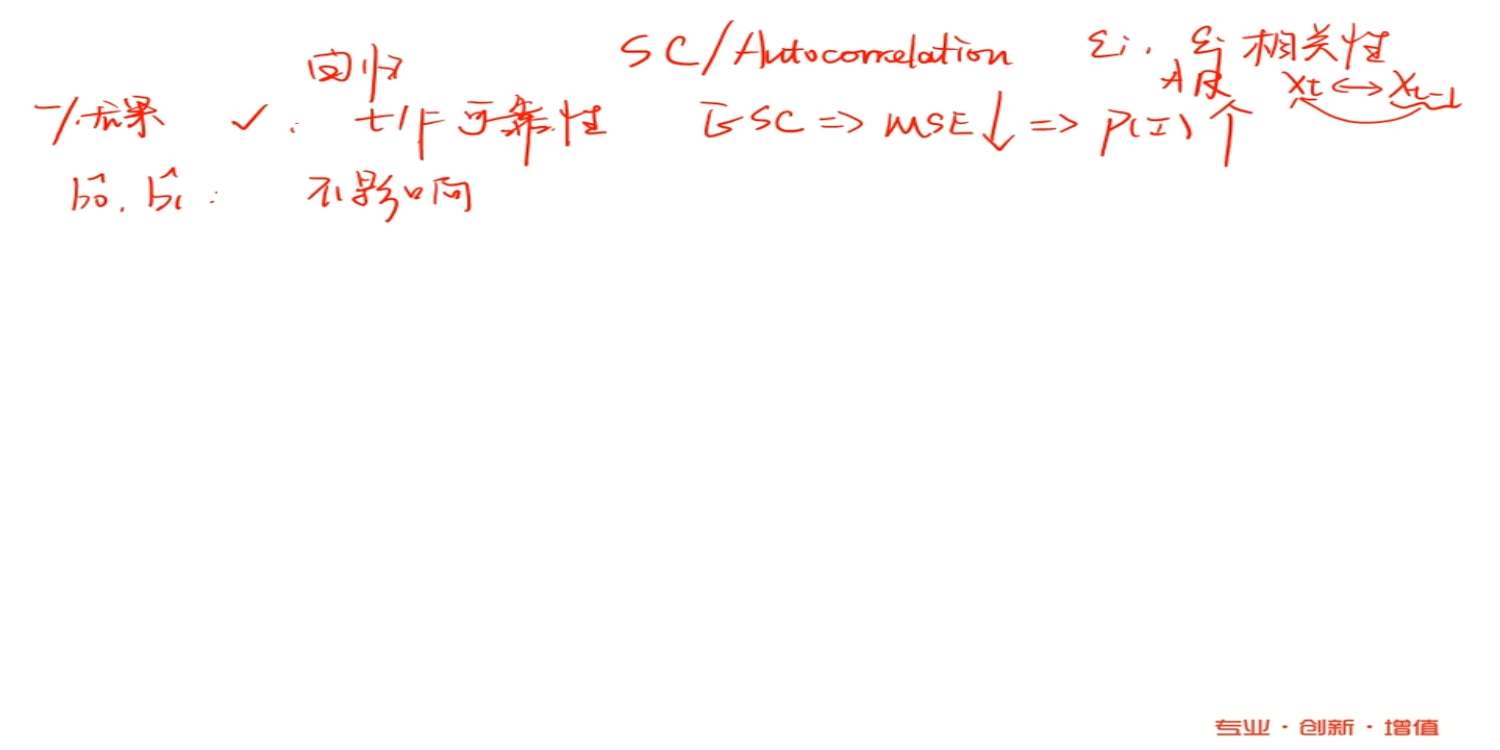 SC/Autocorrelation εi, εj 相关性
回归 AR Xt↔Xt-1
一.后果 ✓. t/F 可靠性 正SC => MSE↓ => P(I)↑
b̂0, b̂1: 不影响
专业·创新·增值